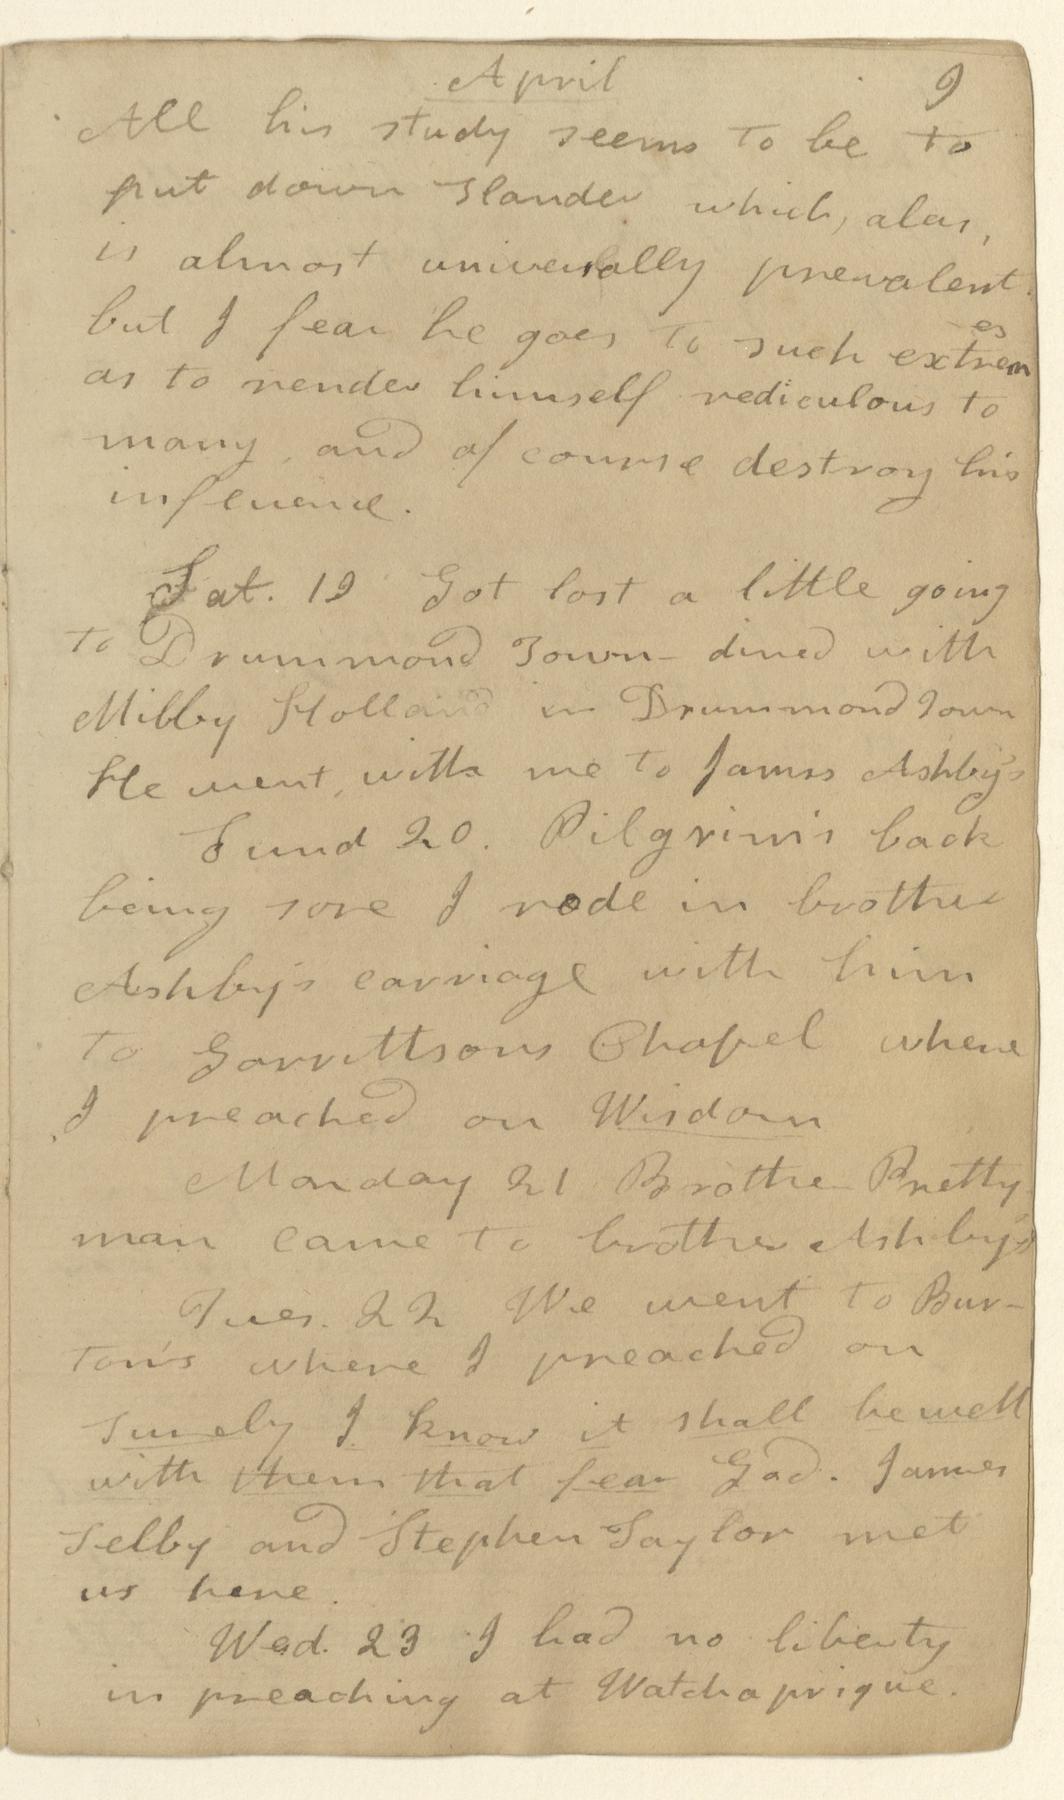 April 9
All his study seems to be to
put down Slander which, alas,
is almost universally prevalent.
but I fear he goes to such extremes
as to render himself rediculous to
many, and of course destroy his
influence.
Sat. 19 Got lost a little going
to Drummond Town - dined with
Milby Holland in Drummond Town
He went with me to James Ashby's
Sund 20. Pilgrim's back
being sore I rode in brother
Ashby's carriage with him
to Garrittsons Chapel where
I preached on Wisdom
Monday 21 Brother Pretty
man came to brother Ashby's
Tues. 22 We went to Bur-
ton's where I preached on
Surely I know it shall be well
with them that fear God. James
Selby and Stephen Taylor met
us here.
Wed. 23 I had no liberty
in preaching at Watchaprigue.